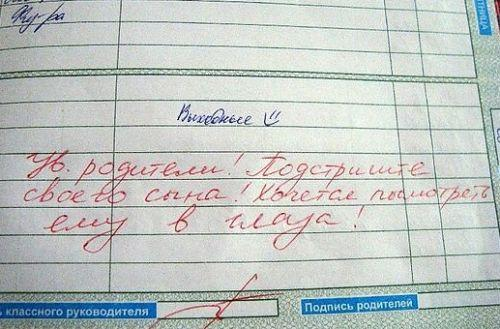 Физ-ра
ТНИЦА
Выходные
Ув. родители! Подстригите
своего сына! Хочется посмотреть
ему в глаза!
классного руководителя
Подпись родителей